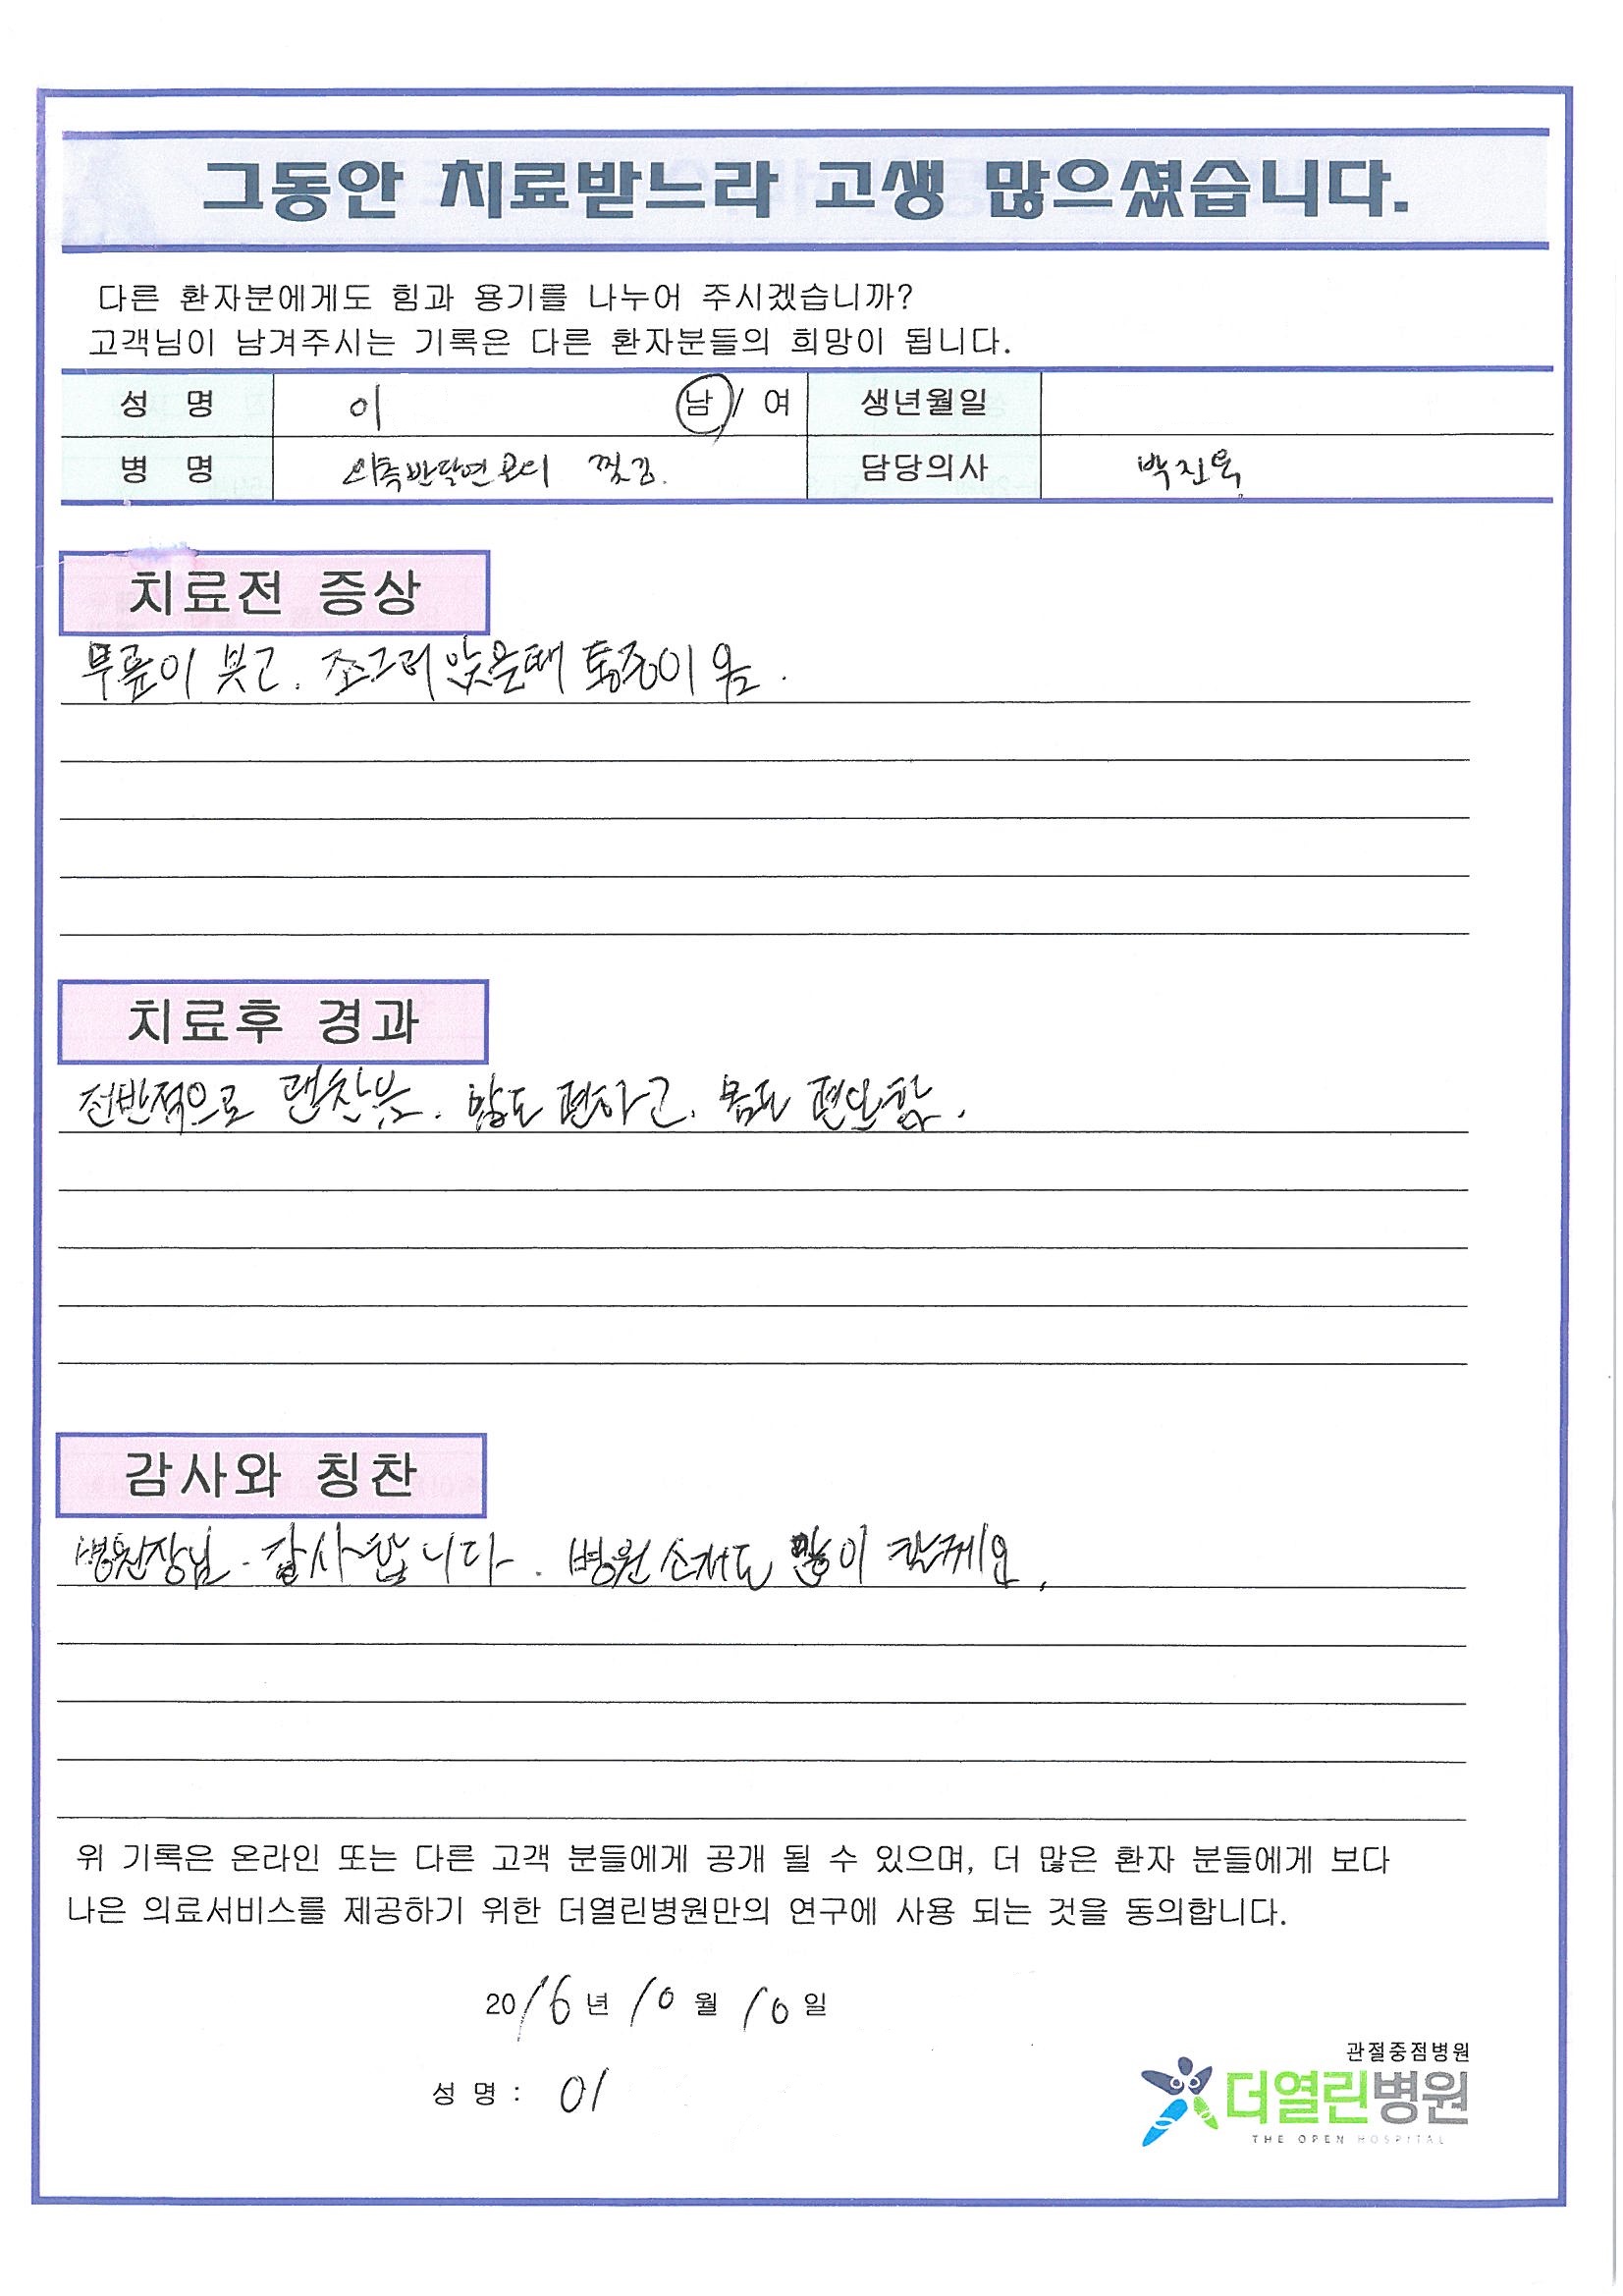 그동안 치료받느라 고생 많으셨습니다.
다른 환자분에게도 힘과 용기를 나누어 주시겠습니까?
고객님이 남겨주시는 기록은 다른 환자분들의 희망이 됩니다.
성 명 이 남 / 여 생년월일
병 명 외측반달연골의 찢김. 담당의사 박진욱
치료전 증상
무릎이 붓고. 쪼그려 앉을때 통증이 옴.
치료후 경과
전반적으로 괜찮음. 맘도 편하고. 몸도 편안함.
감사와 칭찬
병원장님. 감사합니다. 병원소개도 많이 할께요.
위 기록은 온라인 또는 다른 고객 분들에게 공개 될 수 있으며, 더 많은 환자 분들에게 보다
나은 의료서비스를 제공하기 위한 더열린병원만의 연구에 사용 되는 것을 동의합니다.
2016년 10월 10일
성 명 : 이
관절중점병원
더열린병원
THE OPEN HOSPITAL